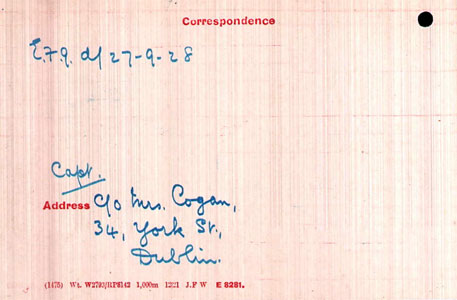 Correspondence
E.F.9. d/ 27-9-28
Capt.
Address c/o Mrs. Cogan,
34, York St.,
Dublin.
(1475) Wt. W2793/RP8142 1,000m 12/21 J.F W E 8281.